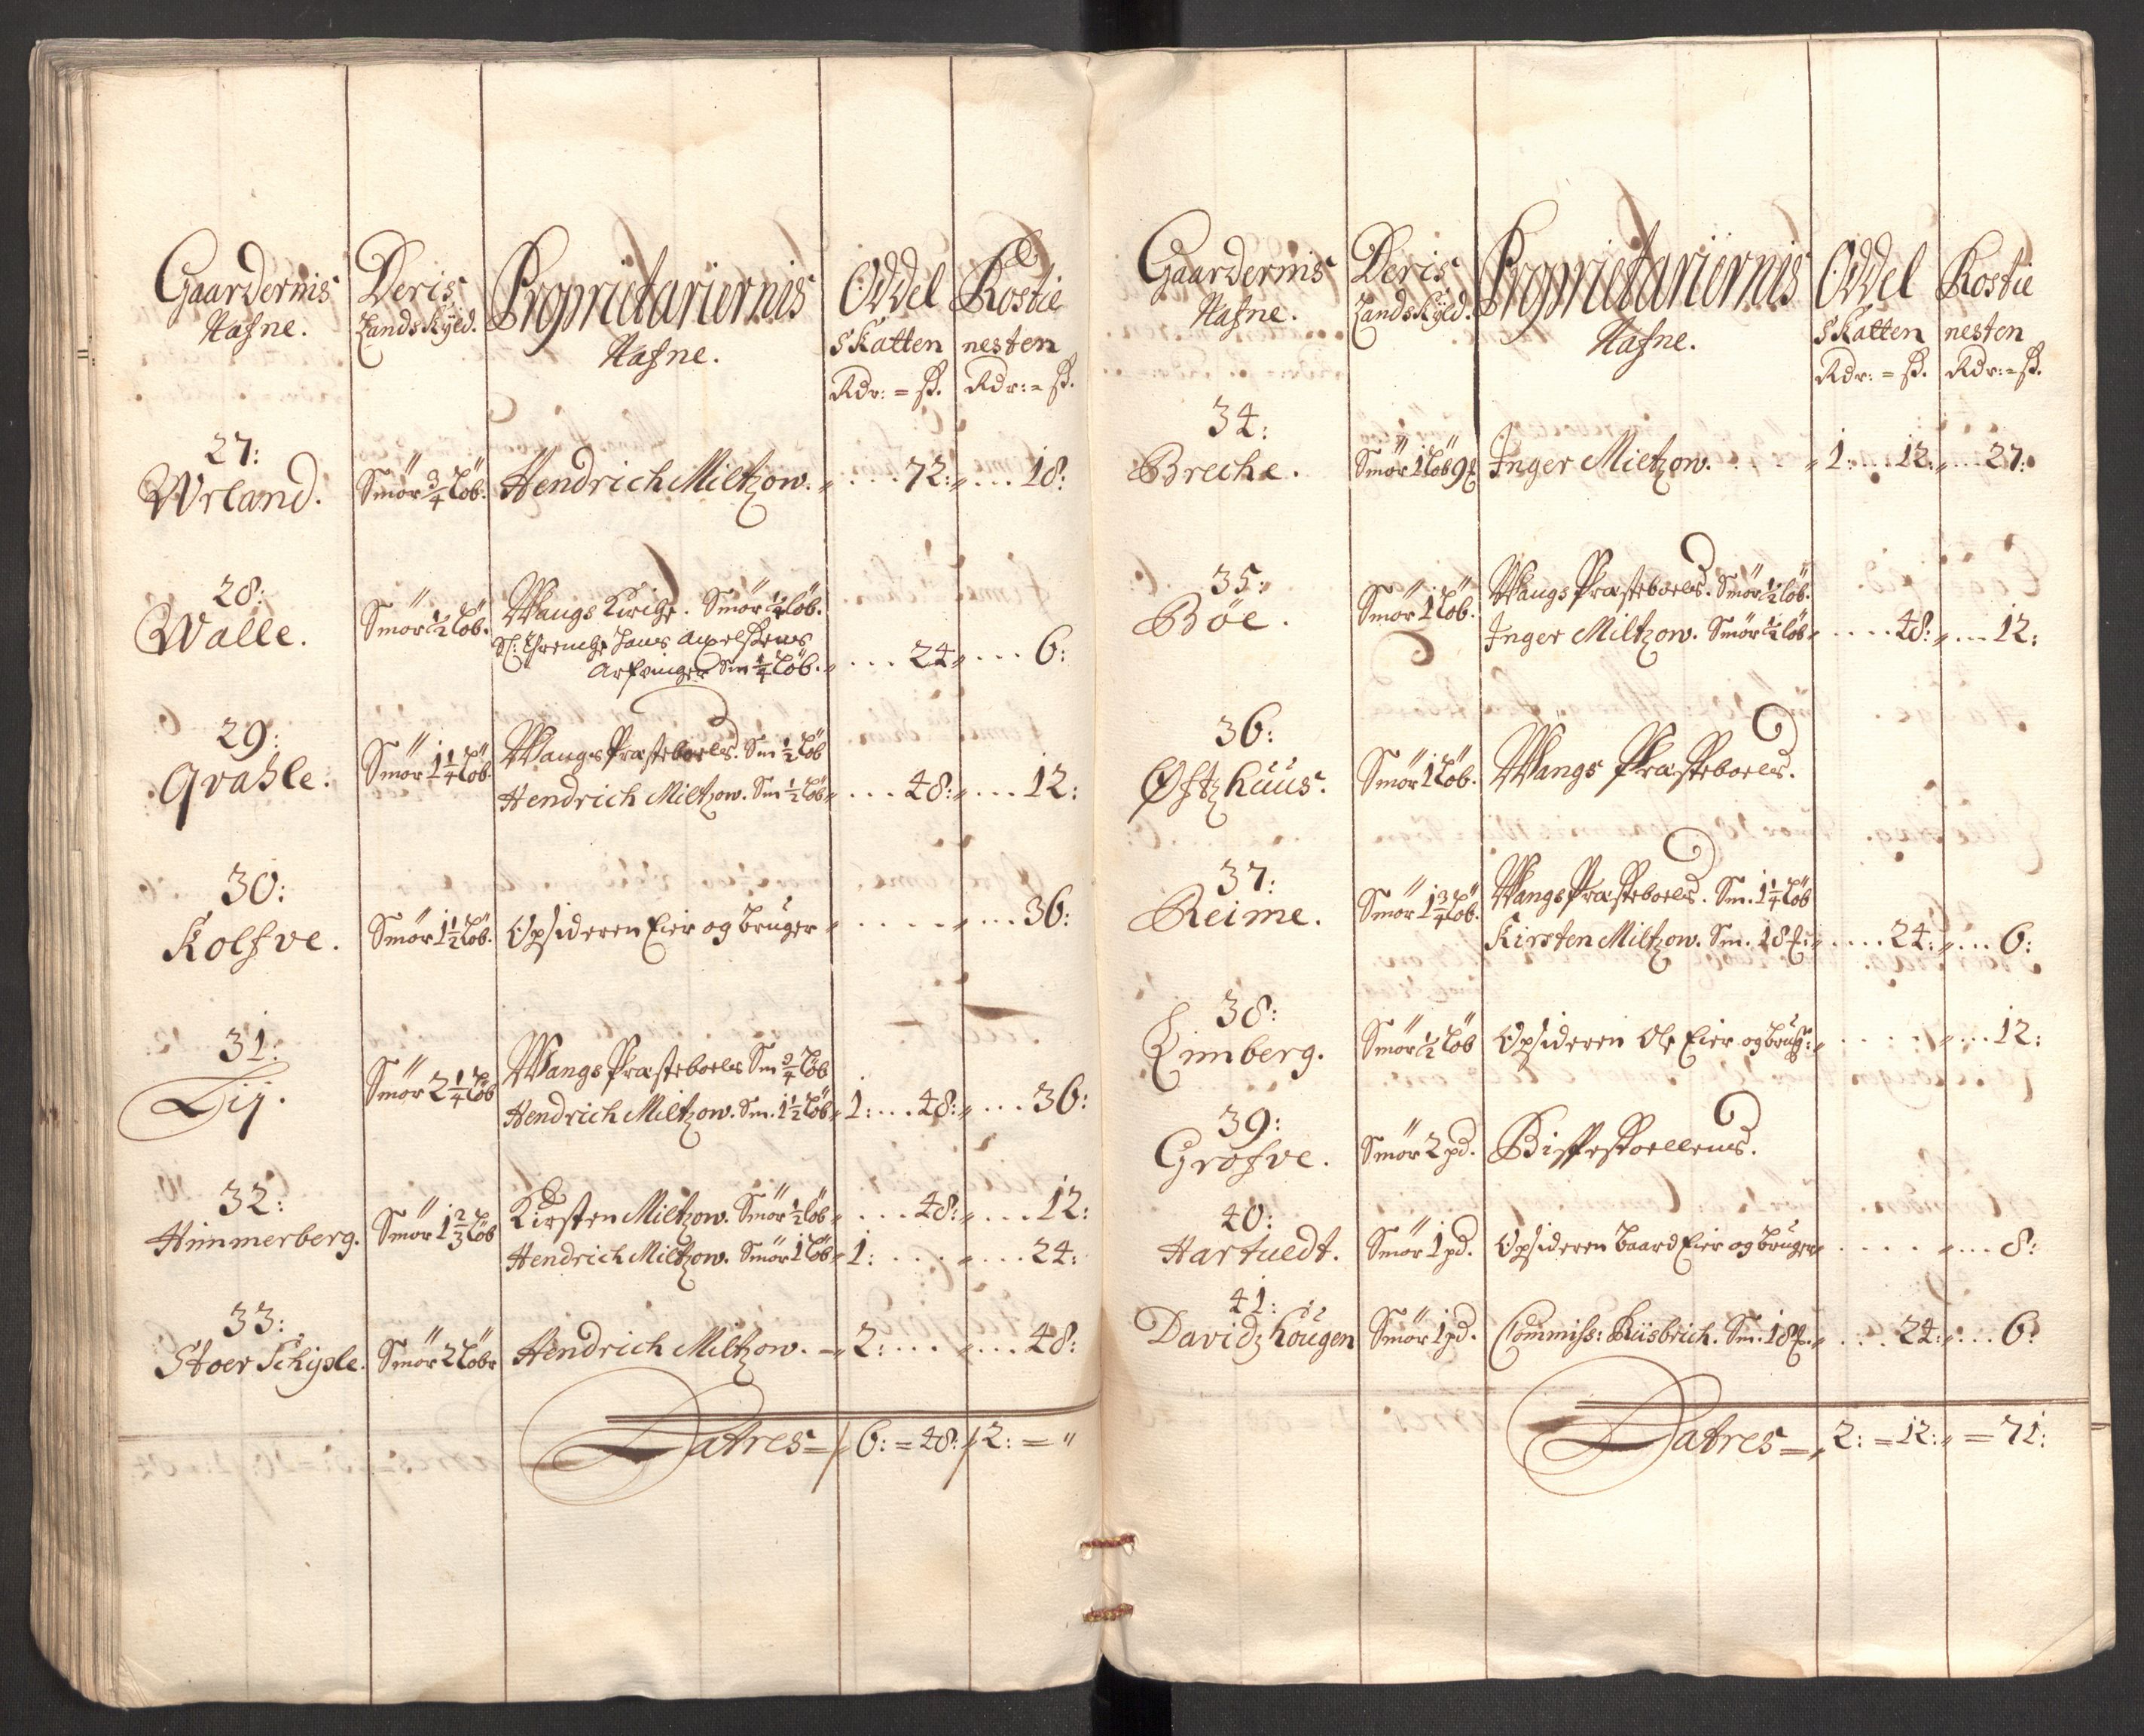 Gaardernis
Nafne.
Deris
Landskyld.
Proprietariernis
Nafne.
Oddel
skatten
Rdr: = ß.
Rostie
nesten
Rdr: = ß.
27:
Wrland. Smör 3/4 Löb. Hendrich Miltzow. „ ... 72: „ ... 18:
28:
Walle. Smör 1/2 Löb. Wangs Kirche. Smör 1/4 löb.
Sl: Jens Axelsens
Arfvinger Sm 1/4 Löb. „ ... 24 „ ... 6:
29:
Qvahle. Smör 1 1/4 Löb. Wangs Præsteboels. Sm 1/2 Löb
Hendrich Miltzow. Sm 1/2 Löb „ ... 48: „ ... 12:
30:
Kolfve. Smör 1 1/2 Löb. Opsideren Eier og bruger „ .... „ ... 36:
31:
Lij. Smör 2 1/4 Löb Wangs Præsteboels Sm 3/4 Löb
Hendrich Miltzow. Sm. 1 1/2 Löb „ 1: ... 48: „ ... 36:
32:
Himmerberg. Smör 1 2/3 Löb Kirsten Miltzow. Smör 1/2 löb „ ... 48: „ ... 12:
Hendrich Miltzow. Smör 1 Löb „ 1: .... „ ... 24:
33:
Stoer Schiple. Smör 2 Löbr Hendrich Miltzow. = „ 2: ... „ ... 48:
Latres = „ 6: = 48: „ 2: = "
Gaardernis
Nafne.
Deris
Landskyld.
Proprietariernis
Nafne.
Oddel
skatten
Rdr: = ß.
Rostie
nesten
Rdr: = ß.
34:
Breche. Smör 1 Löb 9 Inger Mietzow. .... „ 1: ... 12: „ ... 27:
35:
Böe. Smör 1 Löb. Wangs Præsteboels. Smör 1/2 löb.
Inger Miltzow. Smör 1/2 löb „ .... 48: „ ... 12:
36:
Øftzhuus. Smör 1 Löb. Wangs Præsteboels.
37:
Reime. Smör 1 3/4 Löb. Wangs Præsteboels. Sm. 1 1/4 Löb
Kirsten Miltzow. Sm. 18 „ .... 24: „ ... 6:
38:
Limberg. Smör 1/2 Löb Opsideren Ole Eier og brug: „ .... „ ... 12:
39:
Grofve. Smör 2 pd. Bispestoellens.
40:
Hartuedt. Smör 1 pd. Opsideren Baard Eier og bruger „ .... „ ... 8:
41:
Davidz hougen Smör 1 pd. Commiss: Riisbrich. Sm. 18 „ ... 24: „ ... 6:
Latres = „ 2: = 12: „ = 71: